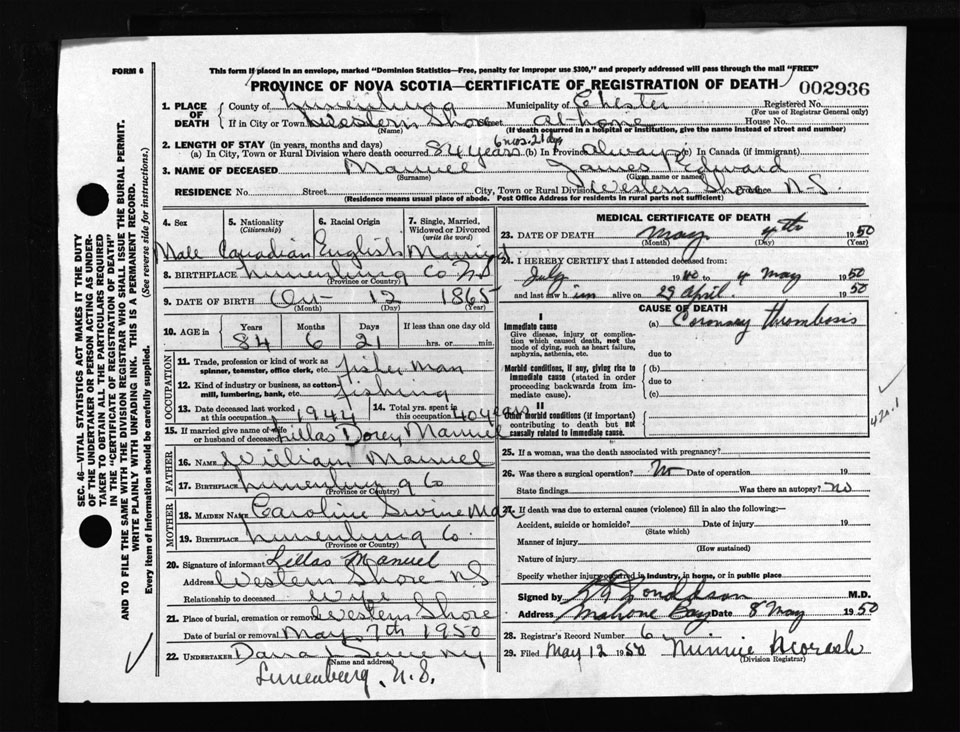 FORM 6
This form if placed in an envelope, marked "Dominion Statistics—Free, penalty for improper use $300," and properly addressed will pass through the mail "FREE"
PROVINCE OF NOVA SCOTIA—CERTIFICATE OF REGISTRATION OF DEATH
002936
1. PLACE OF DEATH County of Lunenburg Municipality of Chester Registered No.
(For use of Registrar General only)
If in City or Town Western Shore Street at home House No.
(Name) (If death occurred in a hospital or institution, give the name instead of street and number)
2. LENGTH OF STAY (in years, months and days)
(a) In City, Town or Rural Division where death occurred 84 years 6 mos. 21 days (b) In Province always (c) In Canada (if immigrant)
3. NAME OF DECEASED Manuel James Edward
(Surname) (Given name or names)
RESIDENCE No. Street City, Town or Rural Division Western Shore Province N.S.
(Residence means usual place of abode. Post Office Address for residents in rural parts not sufficient)
4. Sex 5. Nationality (Citizenship) 6. Racial Origin 7. Single, Married, Widowed or Divorced (write the word)
Male Canadian English Married
8. BIRTHPLACE Lunenburg Co NS
(Province or Country)
9. DATE OF BIRTH 12 1865
(Month) (Day) (Year)
10. AGE in Years Months Days If less than one day old
84 6 21 hrs. or min.
OCCUPATION
11. Trade, profession or kind of work as spinner, teamster, office clerk, etc. fisher man
12. Kind of industry or business, as cotton-mill, lumbering, bank, etc. fishing
13. Date deceased last worked at this occupation 1944 14. Total yrs. spent in this occupation 40 years
15. If married give name of wife or husband of deceased Lillas Dorey Manuel
FATHER
16. NAME William Manuel
17. BIRTHPLACE Lunenburg Co
(Province or Country)
MOTHER
18. MAIDEN NAME Caroline
19. BIRTHPLACE Lunenburg Co.
(Province or Country)
20. Signature of informant Lillas Manuel
Address Western Shore NS
Relationship to deceased wife
21. Place of burial, cremation or removal Western Shore
Date of burial or removal May 7th 1950
22. UNDERTAKER
(Name and address)
Lunenburg, N.S.
MEDICAL CERTIFICATE OF DEATH
23. DATE OF DEATH May 4th 1950
(Month) (Day) (Year)
24. I HEREBY CERTIFY that I attended deceased from:
July 1940 to 4 May 1950
and last saw him alive on 29 April. 1950
CAUSE OF DEATH
I
Immediate cause (a) Coronary thrombosis
Give disease, injury or complication which caused death, not the mode of dying, such as heart failure, asphyxia, asthenia, etc.
due to
Morbid conditions, if any, giving rise to immediate cause (stated in order proceeding backwards from immediate cause).
(b)
due to
(c)
II
Other morbid conditions (if important) contributing to death but not causally related to immediate cause.
420.1
25. If a woman, was the death associated with pregnancy?
26. Was there a surgical operation? No Date of operation 19
State findings Was there an autopsy? no
27. If death was due to external causes (violence) fill in also the following:—
Accident, suicide or homicide? Date of injury 19
(State which)
Manner of injury
(How sustained)
Nature of injury
Specify whether injury occurred in industry, in home, or in public place
Signed by M.D.
Address Mahone Bay Date 8 May 1950
28. Registrar's Record Number 6
29. Filed May 12 1950 Minnie
(Division Registrar)
SEC. 46—VITAL STATISTICS ACT MAKES IT THE DUTY
OF THE UNDERTAKER OR PERSON ACTING AS UNDER-
TAKER TO OBTAIN ALL THE PARTICULARS REQUIRED
IN THE "CERTIFICATE OF REGISTRATION OF DEATH"
AND TO FILE THE SAME WITH THE DIVISION REGISTRAR WHO SHALL ISSUE THE BURIAL PERMIT.
WRITE PLAINLY WITH UNFADING INK. THIS IS A PERMANENT RECORD.
Every item of information should be carefully supplied. (See reverse side for instructions.)